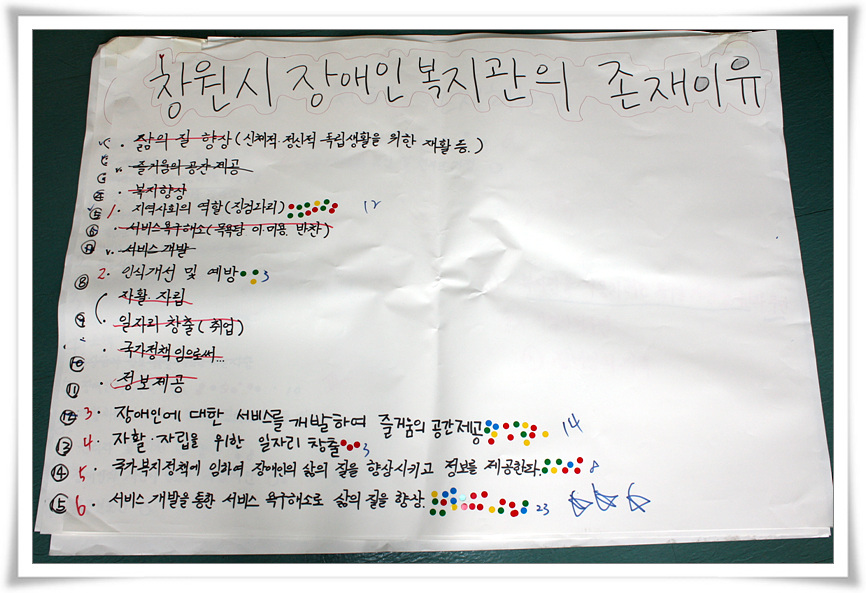 창원시 장애인복지관의 존재이유
· 삶의 질 향상(신체적·정신적 독립생활을 위한 재활 등.)
즐거움의 공간 제공
④ · 복지향상
⑤ 1. 지역사회의 역할(징검다리) 12
⑥ · 서비스욕구해소(목욕탕 이·미용. 반찬)
서비스 개발
⑧ 2. 인식개선 및 예방 3
자활·자립
⑨ · 일자리 창출(취업)
⑩ · 국가정책 임으로써...
⑪ · 정보제공
⑫ 3. 장애인에 대한 서비스를 개발하여 즐거움의 공간제공 14
⑬ 4. 자활·자립을 위한 일자리 창출 3
⑭ 5. 국가복지정책에 임하여 장애인의 삶의 질을 향상시키고 정보를 제공한다. 8
⑮ 6. 서비스 개발을 통한 서비스 욕구해소로 삶의 질을 향상. 23